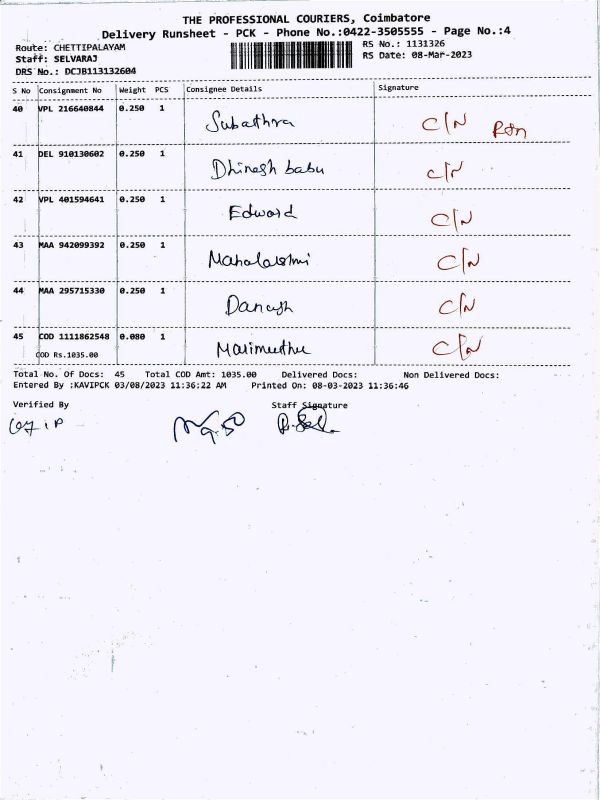 THE PROFESSIONAL COURIERS, Coimbatore
Delivery Runsheet - PCK - Phone No.:0422-3505555 - Page No.:4
Route: CHETTIPALAYAM
RS No.: 1131326
Staff: SELVARAJ
RS Date: 08-Mar-2023
DRS No.: DCJB113132604
S No Consignment No Weight PCS Consignee Details Signature
40 VPL 216640844 0.250 1 Subathra C/N Rtn
41 DEL 910130602 0.250 1 Dhinesh babu C/N
42 VPL 401594641 0.250 1 Edward C/N
43 MAA 942099392 0.250 1 Mahalakshmi C/N
44 MAA 295715330 0.250 1 Danush C/N
45 COD 1111862548 0.080 1 Marimuthu C/N
COD Rs.1035.00
Total No. Of Docs: 45 Total COD Amt: 1035.00 Delivered Docs: Non Delivered Docs:
Entered By :KAVIPCK 03/08/2023 11:36:22 AM Printed On: 08-03-2023 11:36:46
Verified By Staff Signature
9.50